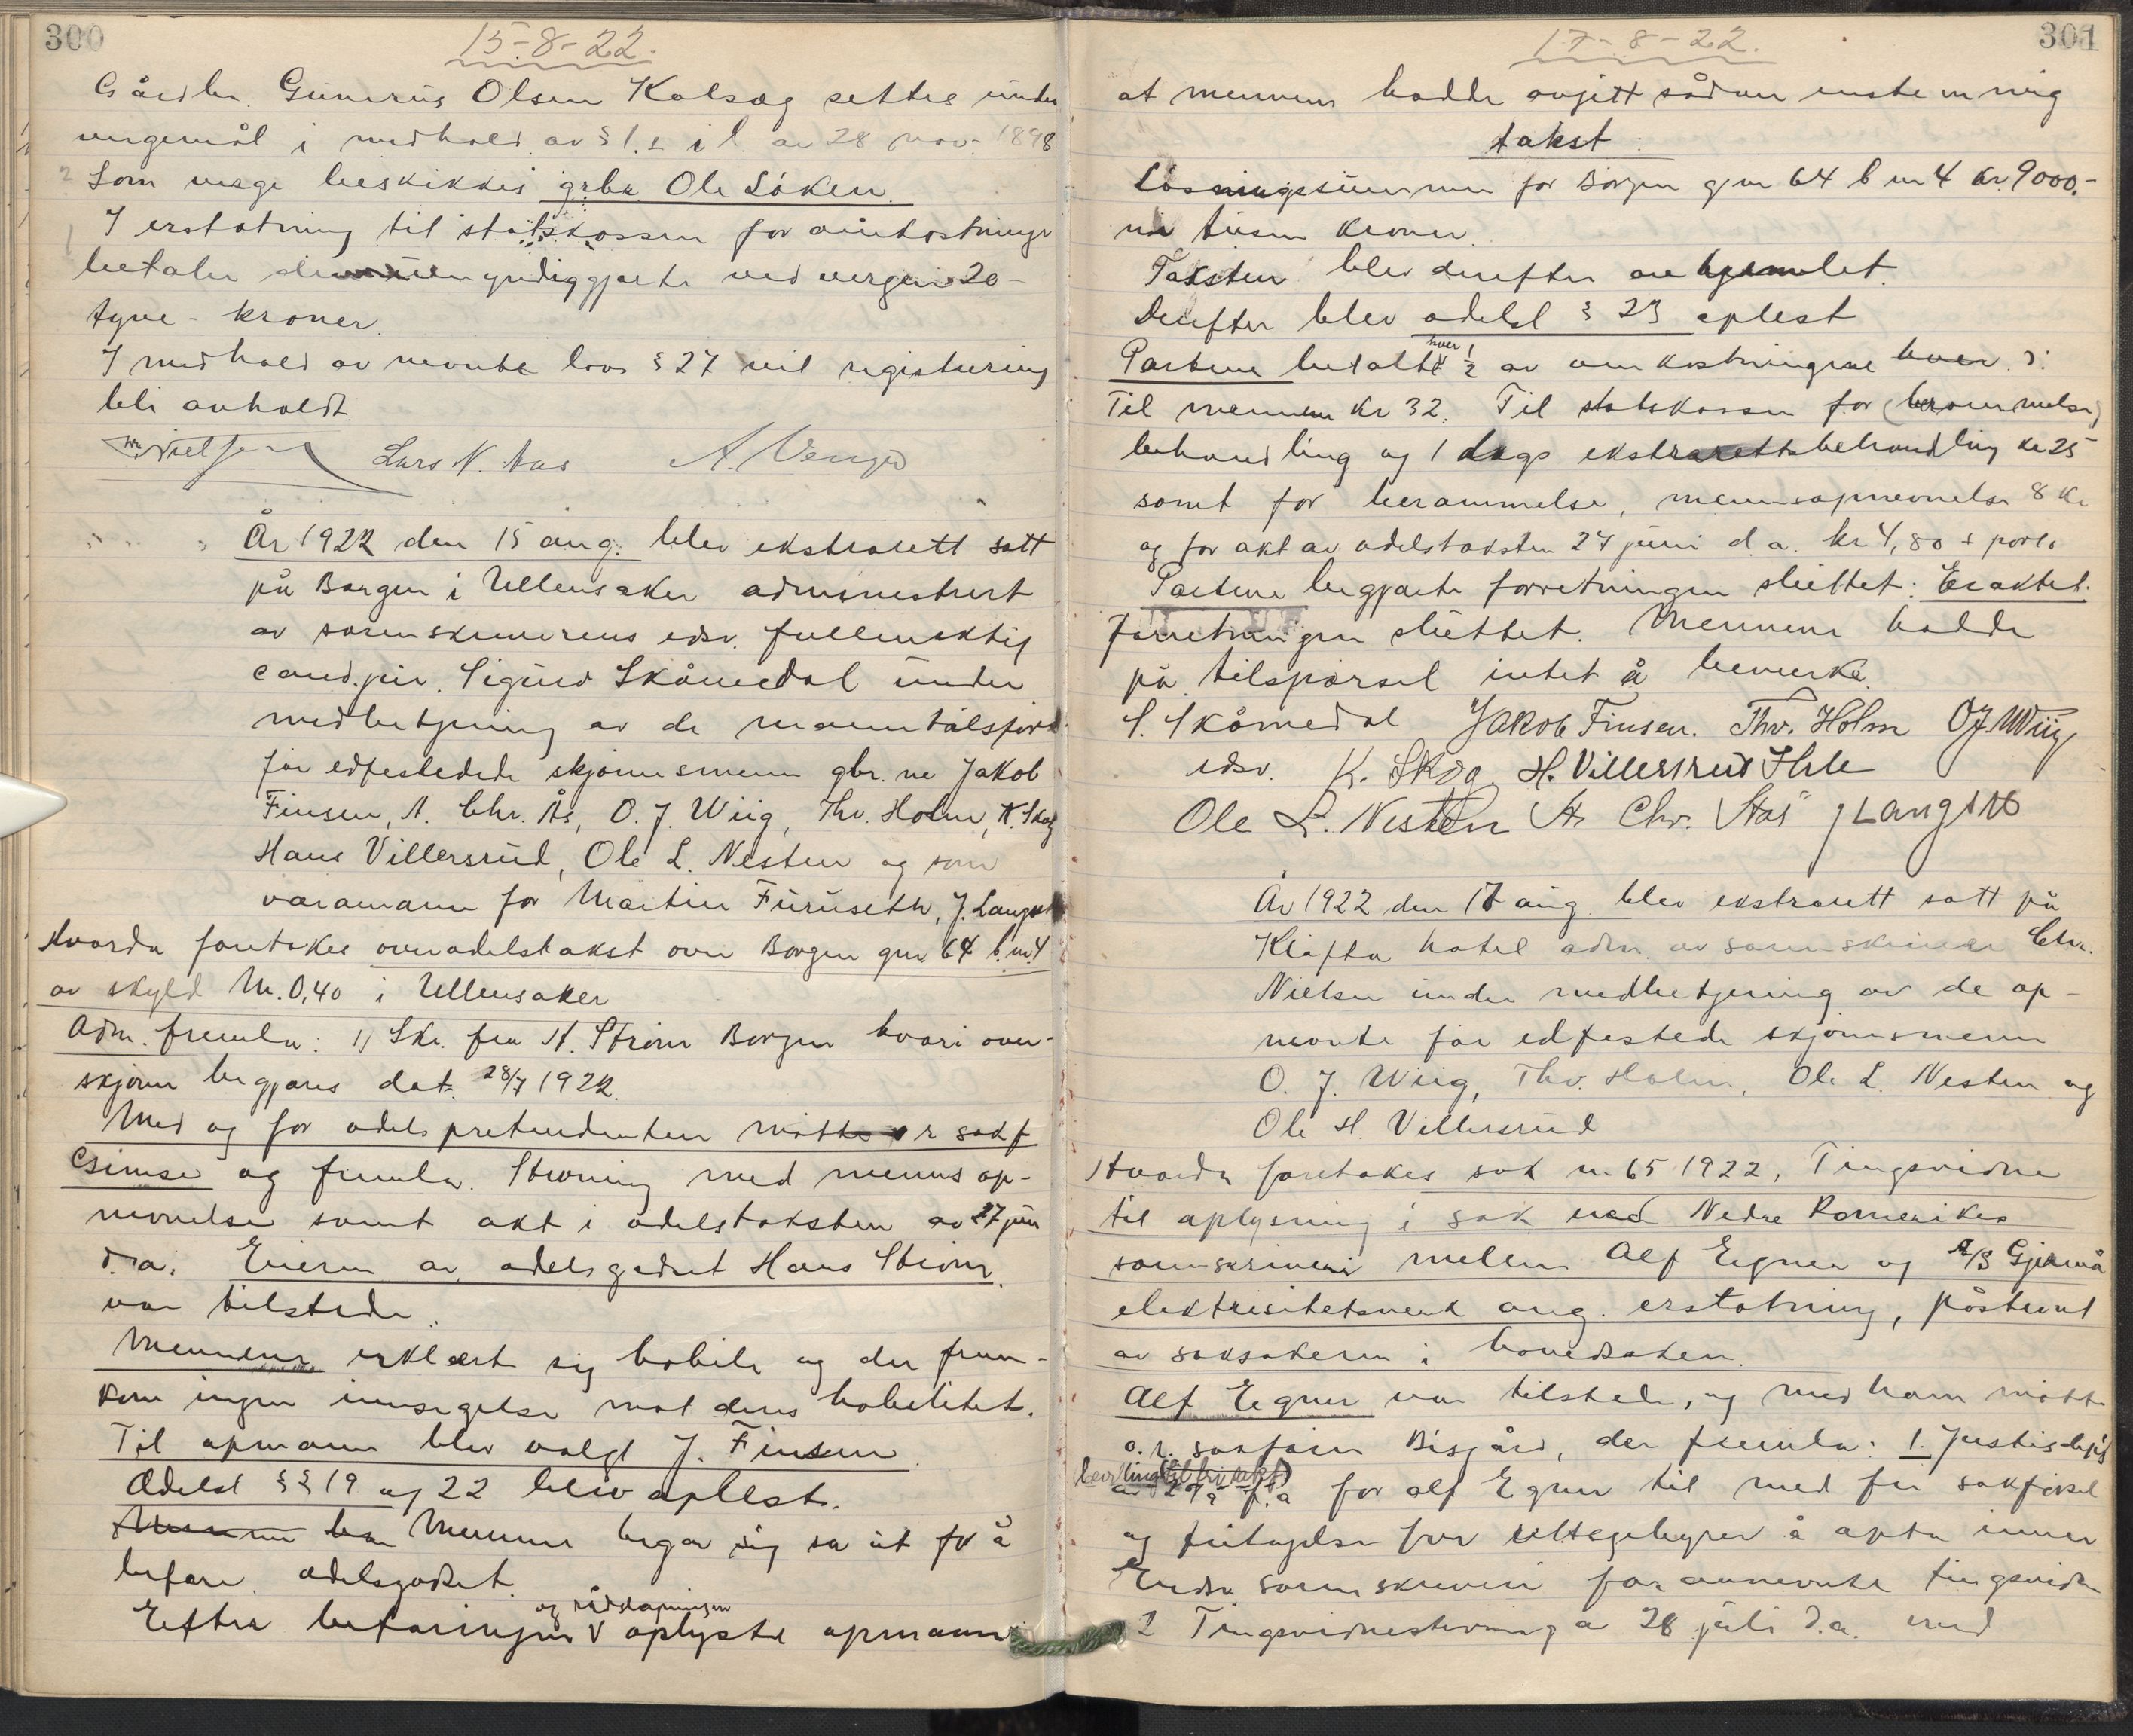 300
15-8-22.
Gårdbr. Gunerius Olsen Kalsæg settes under
vergemål i medhold av § 1.2 i l. av 28 nov. 1898
2 Som verge beskikkes grbr. Ole Löken.
1 I erstatning til statskassen for omkostninger
betaler den umyndiggjorte ved vergen 20 -
tyve - kroner.
I medhold av nevnte lovs § 27 vil registrering
bli avholdt.
Nielsen Lars N. Aas A. Venger
År 1922 den 15 aug. blev ekstrarett satt
på Borgen i Ullensaker administrert
av sorenskriverens edsv. fullmektig
cand. jur. Sigurd Skåmedal under
medbetjening av de manntalsförte
før edfestedede skjønnsmenn gbr.ne Jakob
Finsen, A. Chr. Ås, O. J. Wiig, Thv. Holm, K. Skog
Hans Villersrud, Ole L. Nesten og som
varamann for Martin Furuseth, J. Langseth
Hvorda foretokes overodelstakst over Borgen gnr. 64 b.nr. 4
av skyld M. 0,40 i Ullensaker
Adm. fremla: 1) Skr. fra H. Strøm Borgen hvori over-
skjønn begjæres dat. 28/7 1922.
Med og for odelspretendenten møtte o r sakf
Gsimse og fremla. Stevning med menns op-
nevnelse samt akt i odelstaksten av 27 juni
d.a. Eieren av odelsgodset Hans Strøm
var tilstede.
Mennene erklært sig habile og der frem-
kom ingen innsigelse mot deres habilitet.
Til opmann blev valgt J. Finsen
Odelsl §§ 19 og 22 blev oplest.
Mennene bega Mennene begav sig så ut for å
befare odelsgodset.
Efter befaringen og rådslagningen oplyste opmannen
301
17-8-22.
at mennene hadde avgitt sådan enstemmig
takst:
Løsningssummen for Borgen gnr 64 b nr 4 kr. 9000.-
ni tusen kroner.
Taksten blev derefter avhjemlet.
Derefter blev odelsl § 23 oplest
Partene betalte hver 1/2 av omkostningene hver ɔ:
Til mennene kr 32. Til statskassen for (berammelse)
behandling og 1 dags ekstrarettsbehandling kr 25
samt for berammelse, mennsopnevnelse 8 kr
og for akt av odelstaksten 27 juni d.a. kr 4,80 + porto
Partene begjærte forretningen sluttet: Eraktet.
Forretningen sluttet. Mennene hadde
på tilspørsel intet å bemerke.
S. Skåmedal Jakob Finsen. Thv. Holm O J Wiig
edsv. K. Skog. H. Villersrud Ihle
Ole L. Nesten A Chr. Aas J Langset
År 1922 den 17 aug. blev ekstrarett satt på
Kløfta hotel adm. av sorenskriver Chr.
Nielsen under medbetjening av de op-
nevnte før edfestede skjønnsmenn
O. J. Wiig, Thv. Holm, Ole L. Nesten og
Ole H. Villersrud
Hvorda foretokes sak nr 65 1922, Tingsvidne
til oplysning i sak ved Nedre Romerikes
sorenskriveri mellem Alf Egner og A/S Gjermå
elektrisitetsverk ang. erstatning, påstevnt
av saksøkeren i hovedsaken.
Alf Egner var tilstede, og med ham møtte
o.r. sakfører Bisgård, der fremla: 1. Justisdep's
bevilling (til fri sakf)
av f.a for Alf Egner til med fri sakførsel
og fritagelse for rettsgebyrer å opta innen
Eidsv sorenskriveri forannevnte tingsvidne
2 Tingsvidnestevning av 28 juli d.a. med